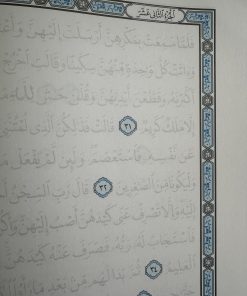 الجزء الثاني عشر
فَلَمَّا سَمِعَتْ بِمَكْرِهِنَّ أَرْسَلَتْ إِلَيْهِنَّ
وَءَاتَتْ كُلَّ وَٰحِدَةٍ مِّنْهُنَّ سِكِّينًا وَقَالَتِ ٱخْرُجْ
أَكْبَرْنَهُۥ وَقَطَّعْنَ أَيْدِيَهُنَّ وَقُلْنَ حَٰشَ لِلَّهِ مَا
إِلَّا مَلَكٌ كَرِيمٌ ٣١ قَالَتْ فَذَٰلِكُنَّ ٱلَّذِى لُمْتُنَّنِى
عَن نَّفْسِهِۦ فَٱسْتَعْصَمَ وَلَئِن لَّمْ يَفْعَلْ مَا
وَلَيَكُونًا مِّنَ ٱلصَّٰغِرِينَ ٣٢ قَالَ رَبِّ ٱلسِّجْنُ
إِلَيْهِ وَإِلَّا تَصْرِفْ عَنِّى كَيْدَهُنَّ أَصْبُ إِلَيْهِنَّ وَأَكُن
فَٱسْتَجَابَ لَهُۥ رَبُّهُۥ فَصَرَفَ عَنْهُ كَيْدَهُنَّ
ٱلْعَلِيمُ ٣٤ ثُمَّ بَدَا لَهُم مِّنۢ بَعْدِ مَا